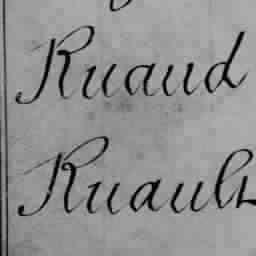 Ruaud
Ruault